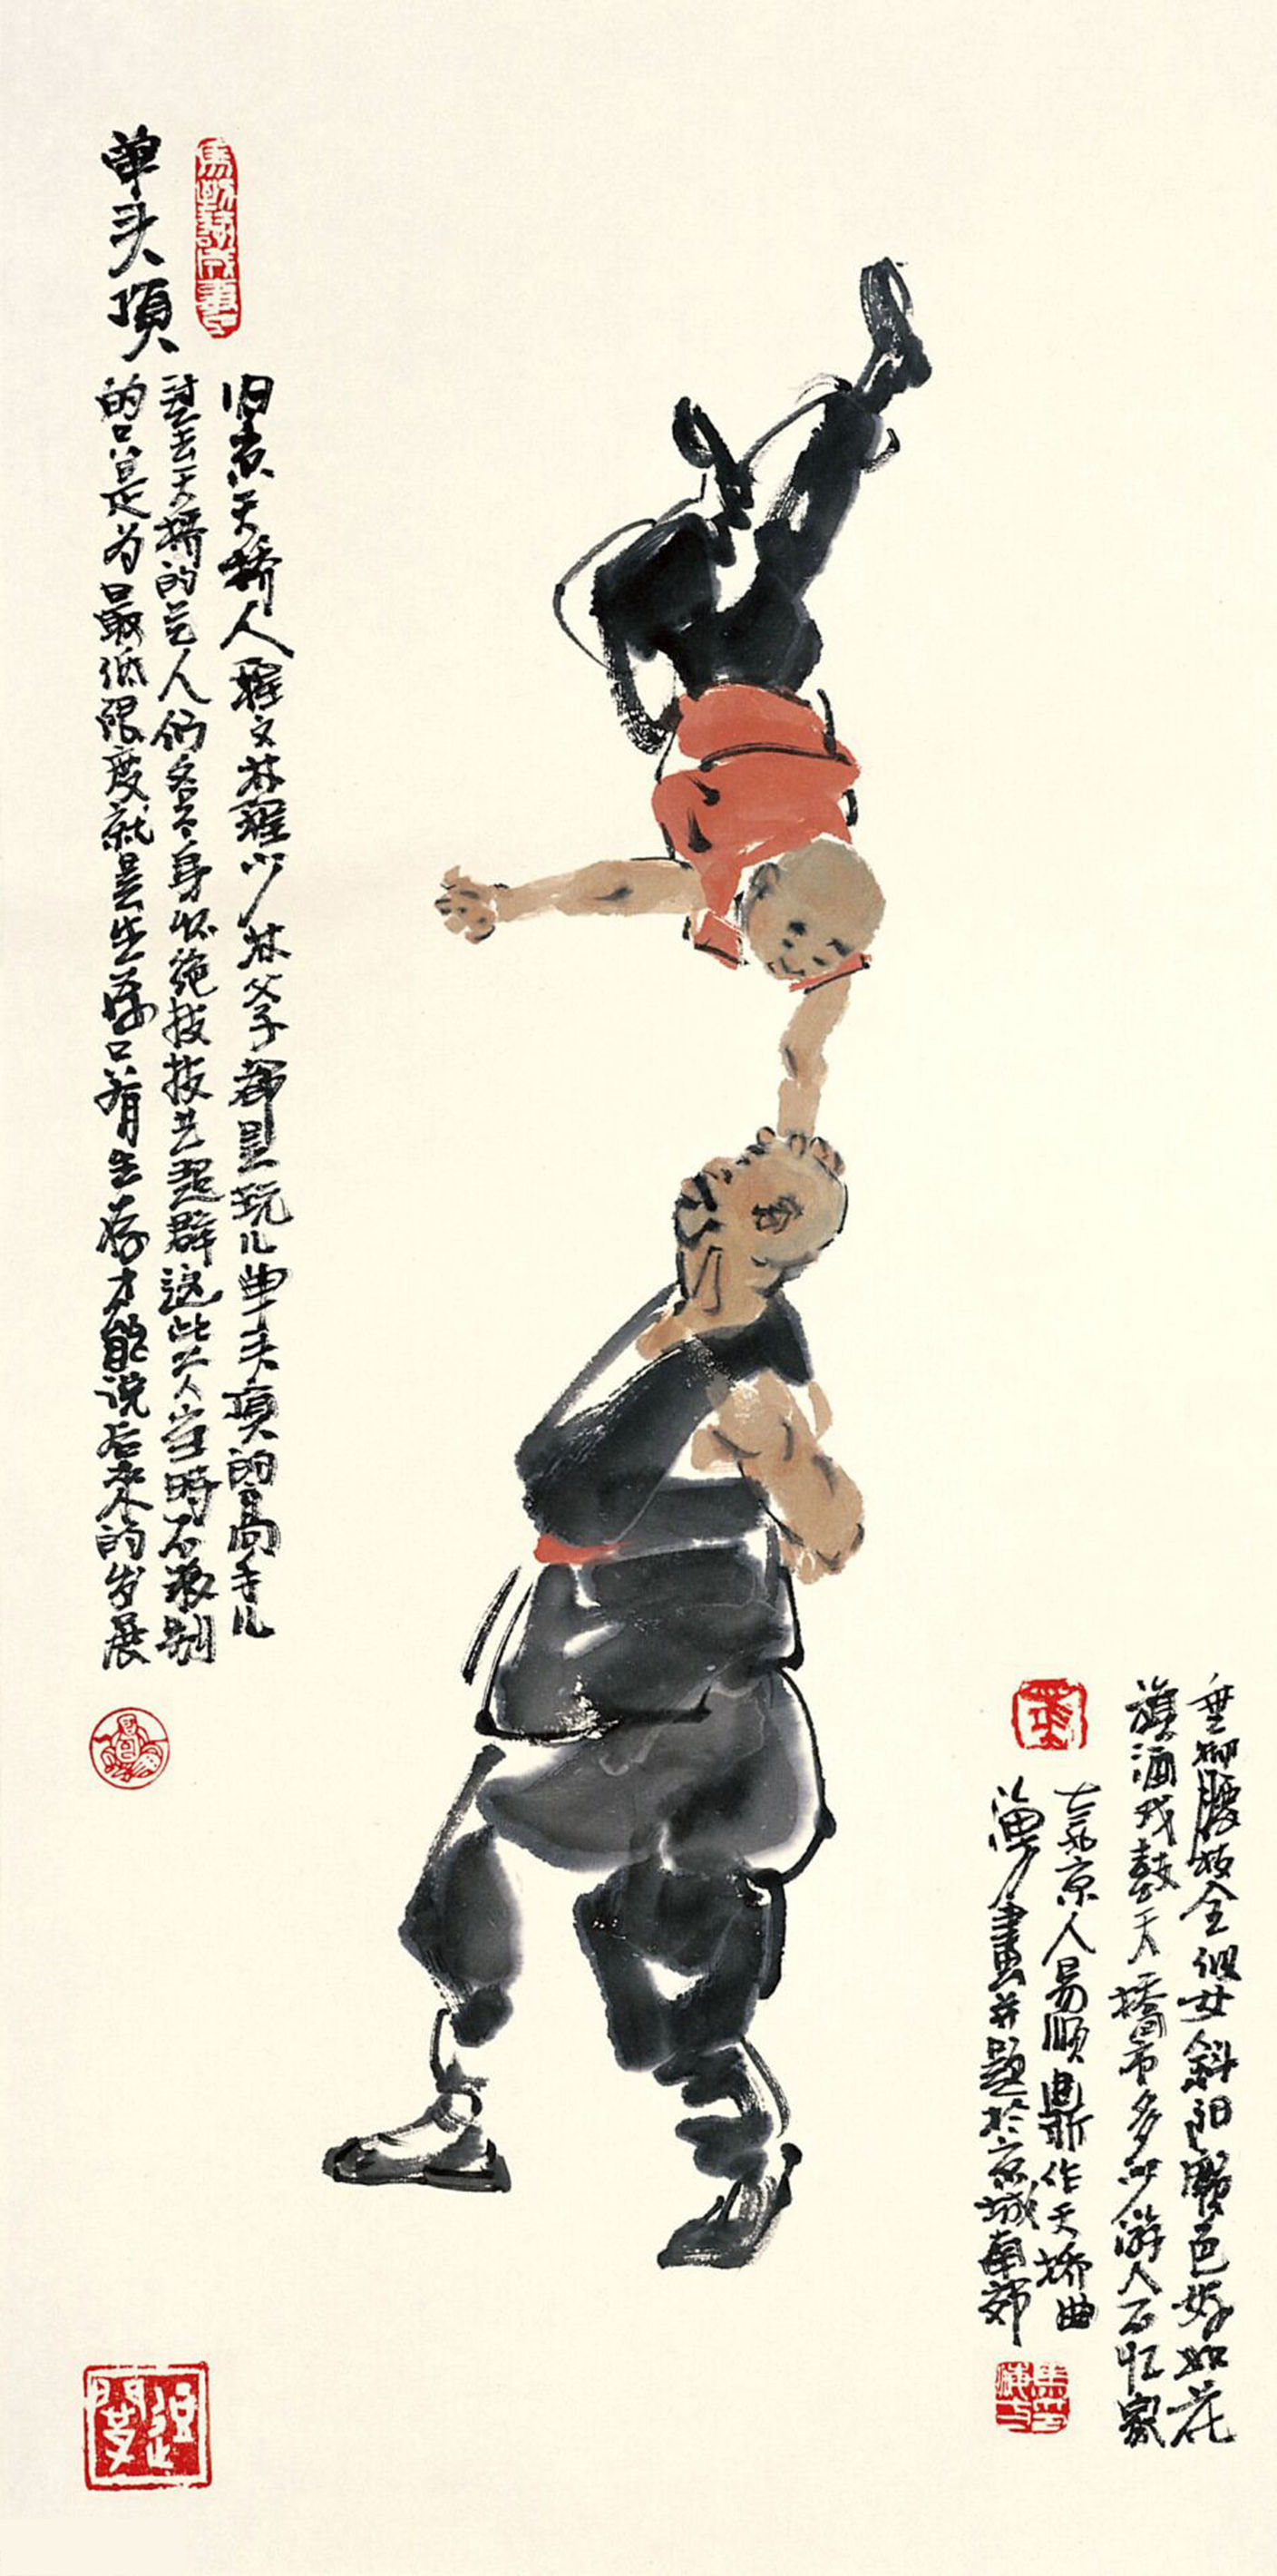 单头頂
旧京天桥人程文林程少林父子都是玩儿单头頂的高手儿
过去天桥的艺人们各个身怀绝技技艺超群这些人当時不求别
的只是为最低限度就是生存只有生存才能说后来的发展
垂柳腰肢全似女斜阳颜色好如花
旗酒戏鼓天橋市多少游人不忆家
京人易顺鼎作天桥曲
海方畫并题於京城南郊
马海方